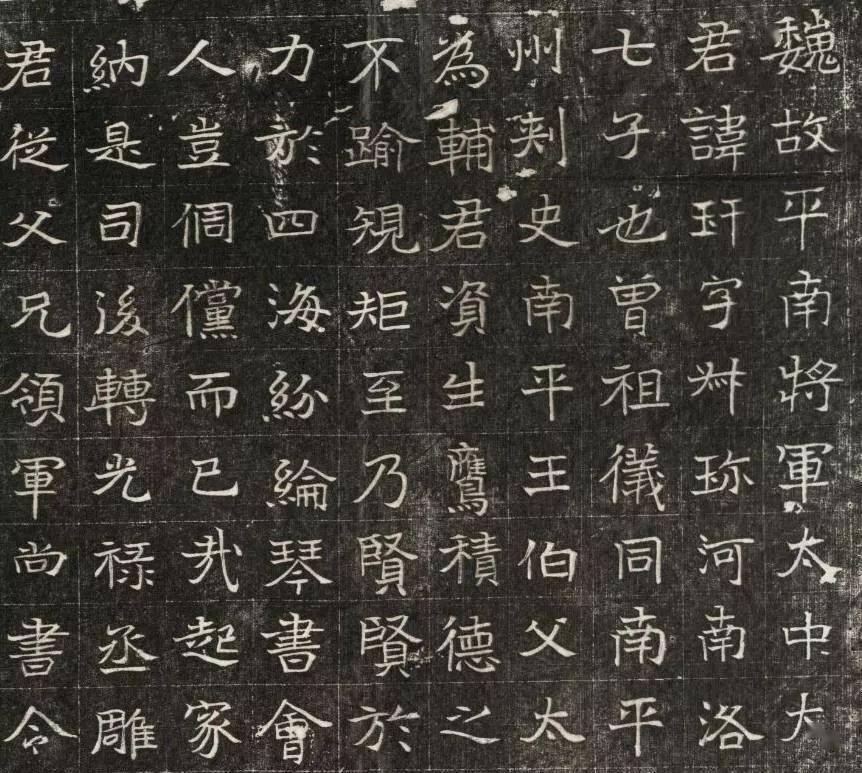 魏故平南將軍太中大
君諱玕字叔珍河南洛
七子也曾祖儀同南平
州刺史南平王伯父太
為輔君資生鷹積德之
不踰規矩至乃賢賢於
力於四海紛綸琴書會
人豈倜儻而已哉起家
納是司後轉光祿丞雕
君從父兄領軍尚書令